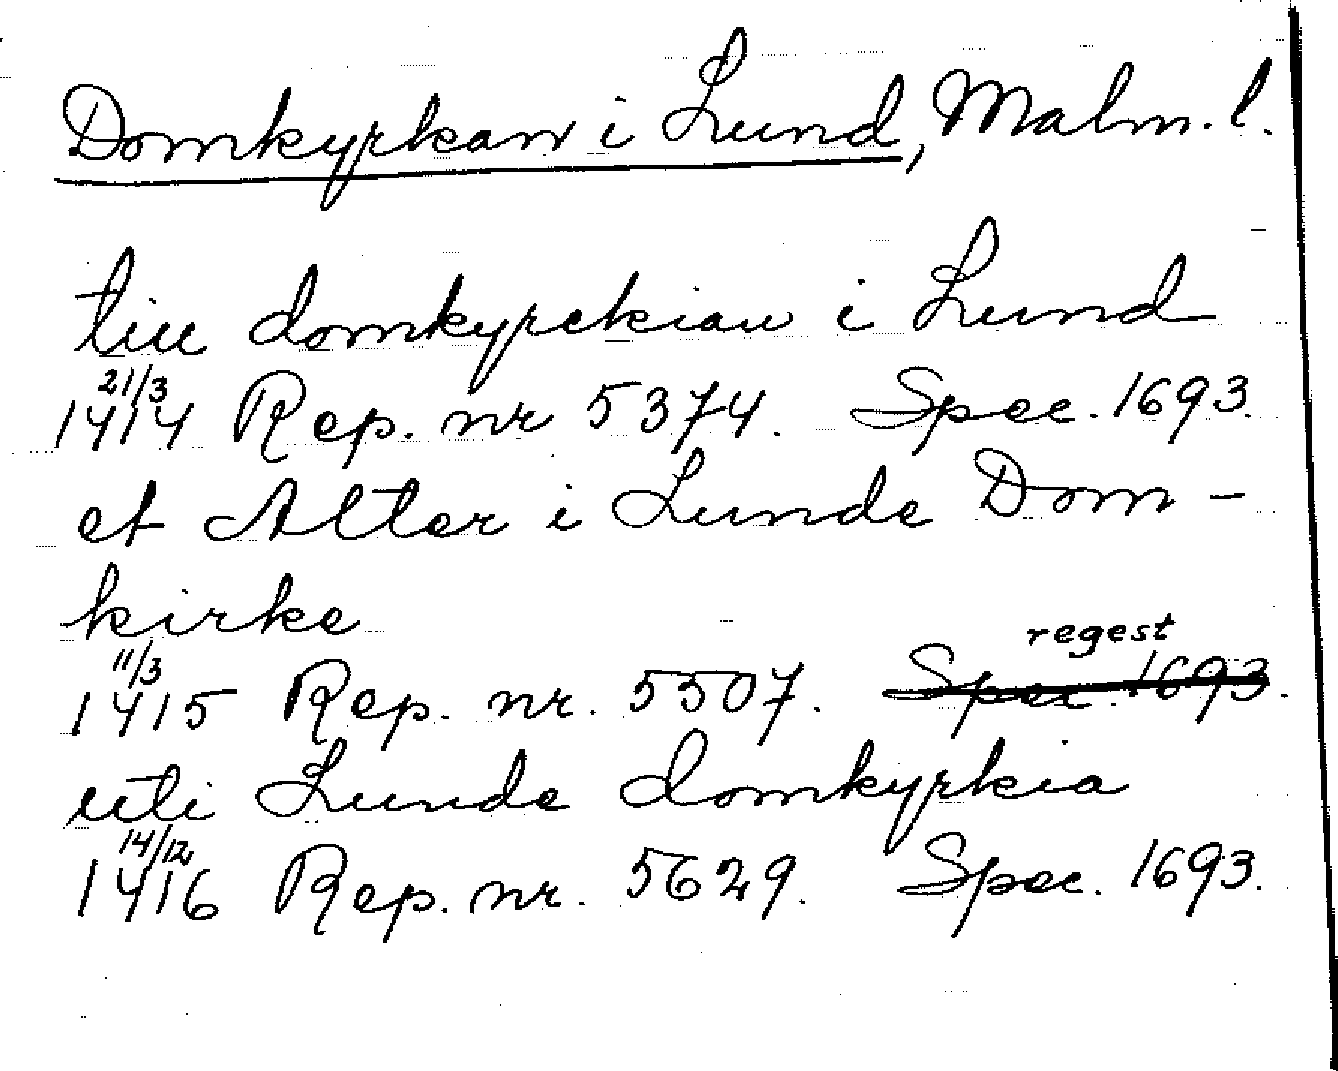 Domkyrkan i Lund, Malm. l.
till domkyrckian i Lund
21/3
1414 Rep. nr 5374. Spec. 1693.
et Alter i Lunde Dom-
kirke
regest
11/3
1415 Rep. nr. 5507. Spec. 1693.
uti Lunde domkyrkia
14/12
1416 Rep. nr. 5629. Spec. 1693.